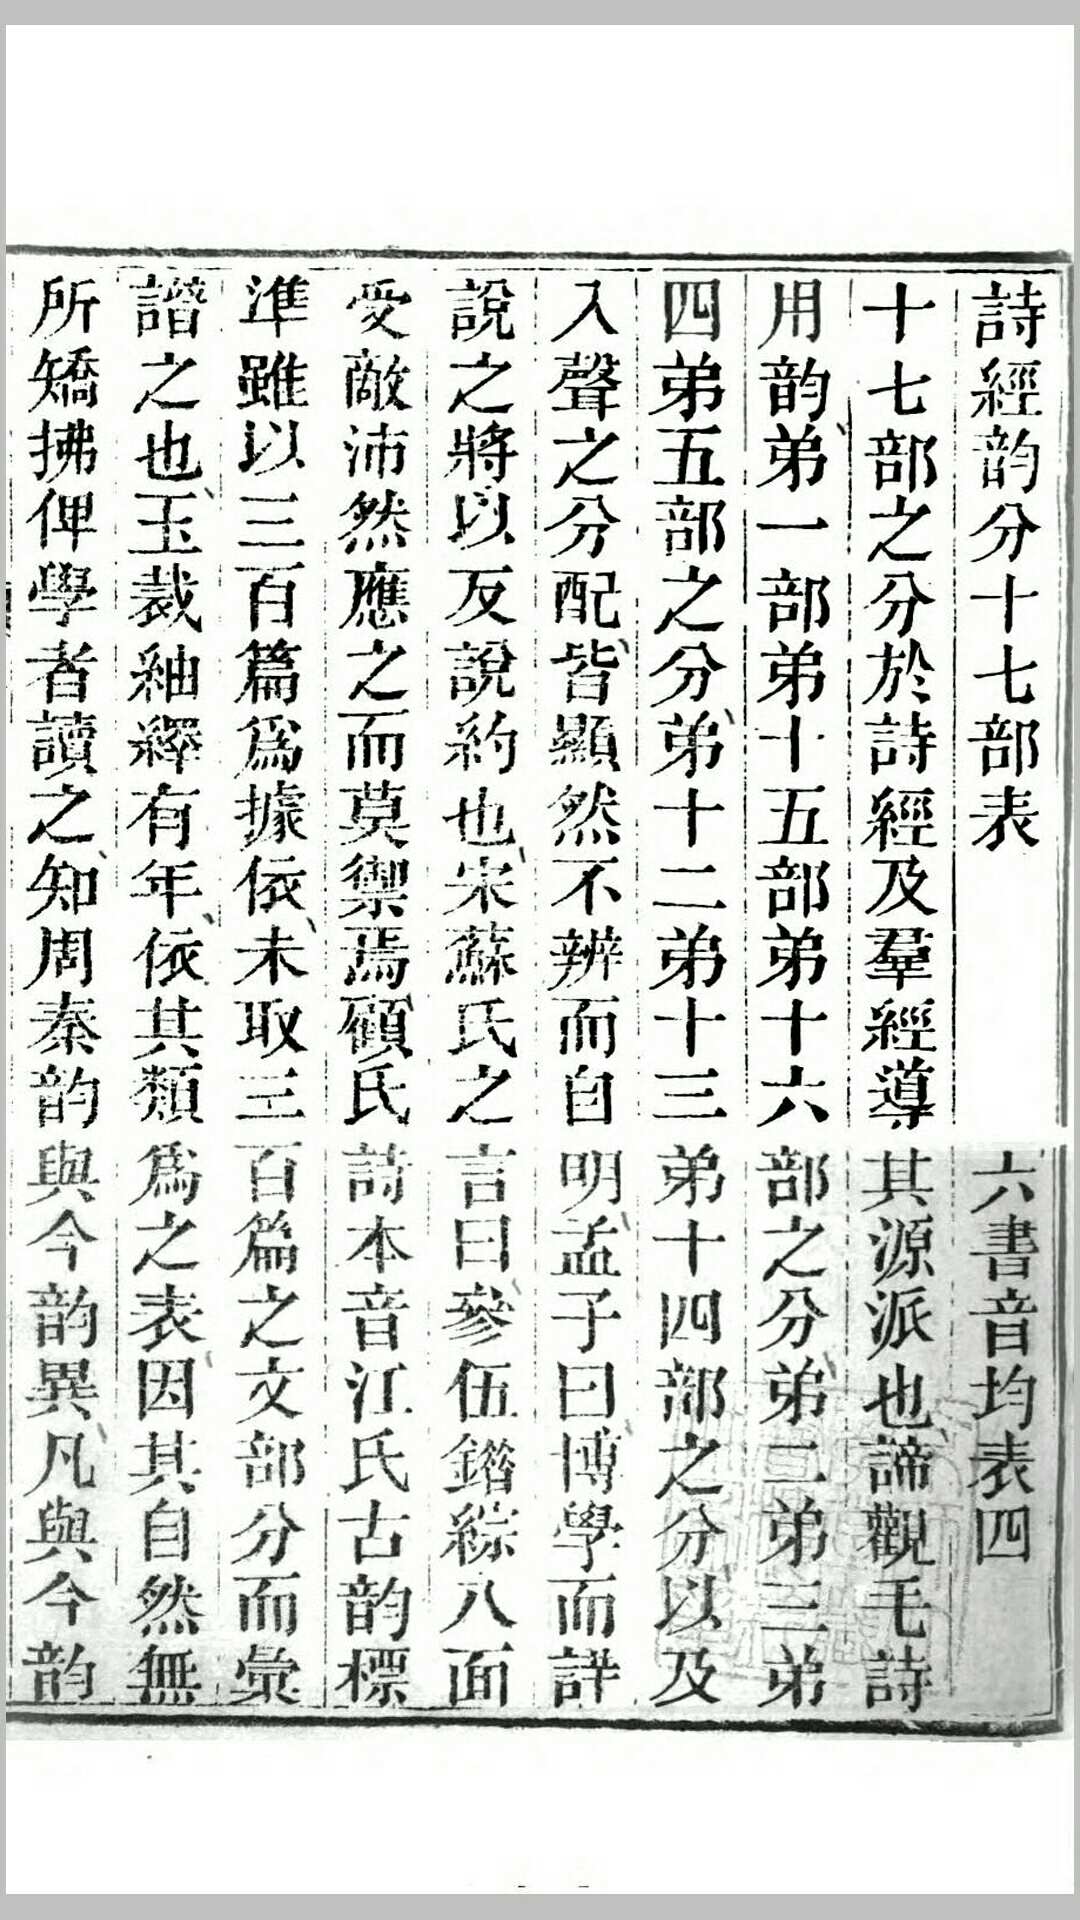 詩經韵分十七部表 六書音均表四
十七部之分於詩經及羣經導其源派也諦觀毛詩
用韵弟一部弟十五部弟十六部之分弟二弟三弟
四弟五部之分弟十二弟十三弟十四部之分以及
入聲之分配皆顯然不辨而自明孟子曰博學而詳
說之將以反說約也宋蘇氏之言曰參伍錯綜八面
受敵沛然應之而莫禦焉顧氏詩本音江氏古韵標
準雖以三百篇爲據依未取三百篇之文部分而彙
譜之也玉裁紬繹有年依其類爲之表因其自然無
所矯拂俾學者讀之知周秦韵與今韵異凡與今韵